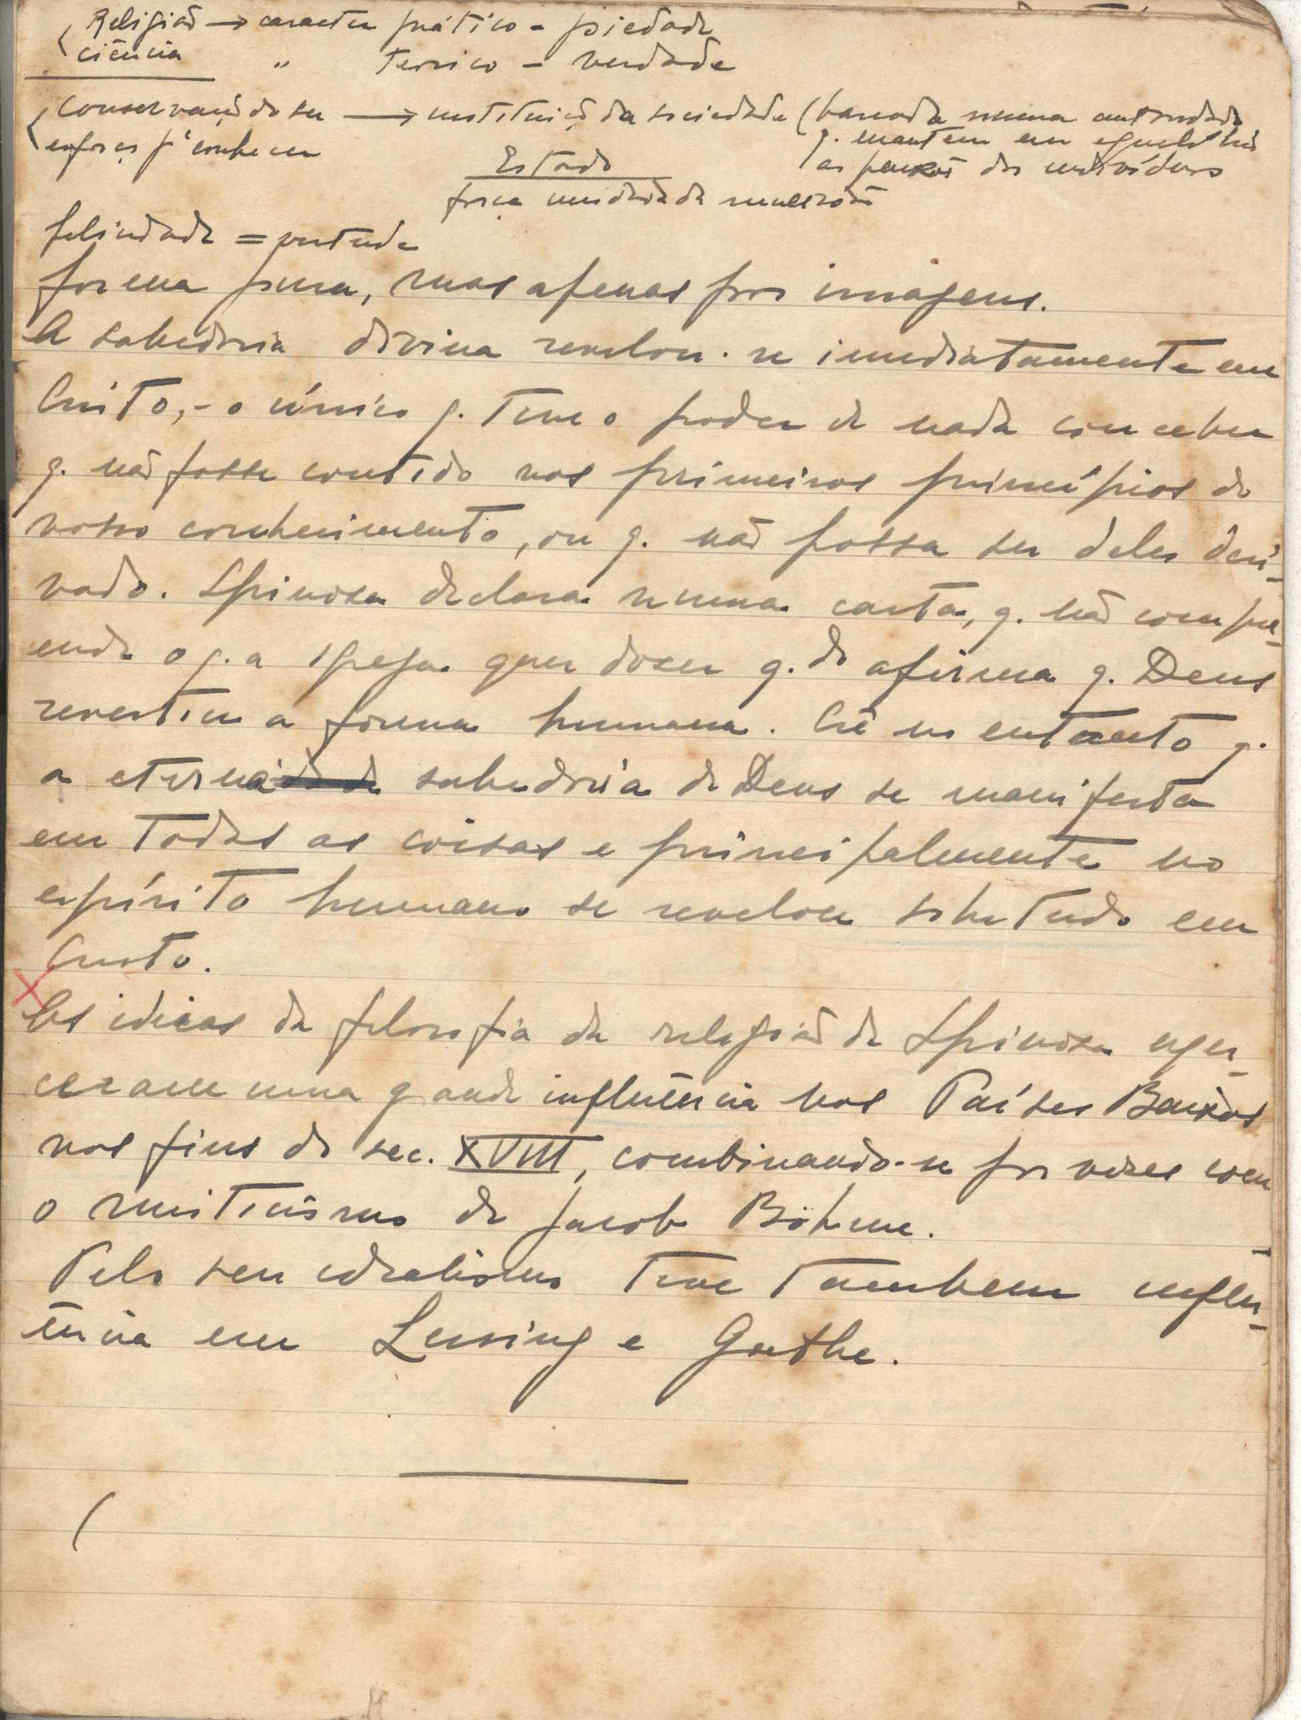 Religião → caracter prático - piedade
ciência " teorico - verdade
conservação do ser → instituição da sociedade (baseada numa autoridade
esforço pª conhecer q. mantem em equilíbrio
Estado as paixões dos indivíduos
força unidade da multidão
felicidade = virtude
forma pura, mas apenas por imagens.
A sabedoria divina revelou-se imediatamente em
Cristo, - o único q. teve o poder de nada conceber
q. não fosse contido nos primeiros princípios do
nosso conhecimento, ou q. não possa ser deles deri-
vado. Spinosa declara numa carta, q. não compre-
ende o q. a Igreja quer dizer q.do afirma q. Deus
revestiu a forma humana. Crê no entanto q.
a eterna sabedoria de Deus se manifesta
em todas as coisas e principalmente no
espírito humano se revelou sobretudo em
Cristo.
As ideias da filosofia da religião de Spinosa exer-
ceram uma grande influência nos Países Baixos
nos fins do sec. XVIII, combinando-se por vezes com
o misticismo de Jacob Böhme.
Pelo seu idealismo teve tambem influ-
ência em Lessing e Goethe.
(